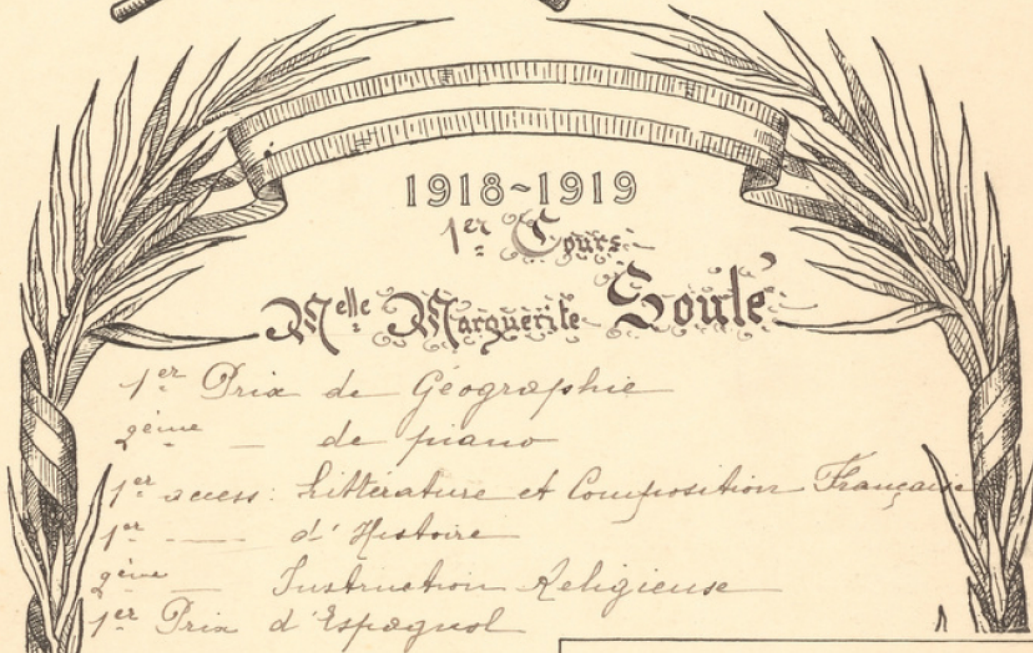 1918-1919
1er Cours
Melle Marguerite Soulé
1er Prix de Géographie
2ème — de piano
1er access: Littérature et Composition Française
1er —— d'Histoire
2ème — Instruction Religieuse
1er Prix d'Espagnol